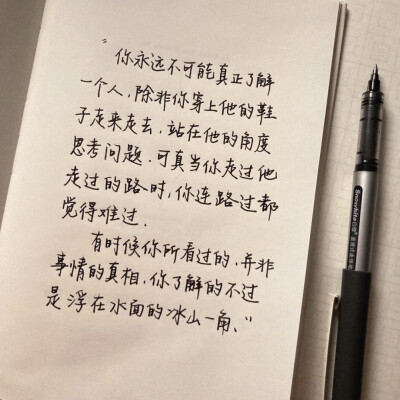 “你永远不可能真正了解
一个人，除非你穿上他的鞋
子走来走去，站在他的角度
思考问题．可真当你走过他
走过的路时，你连路过都
觉得难过．
有时候你所看过的，并非
事情的真相，你了解的不过
是浮在水面的冰山一角、”
Snowhite